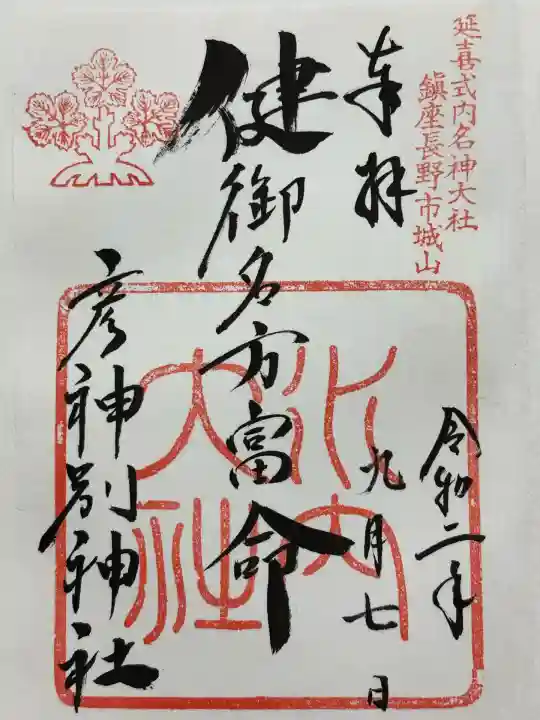 延喜式内名神大社
鎮座長野市城山
奉拝
令和二年
九月七日
健御名方富命
彦神別神社
水内
大社